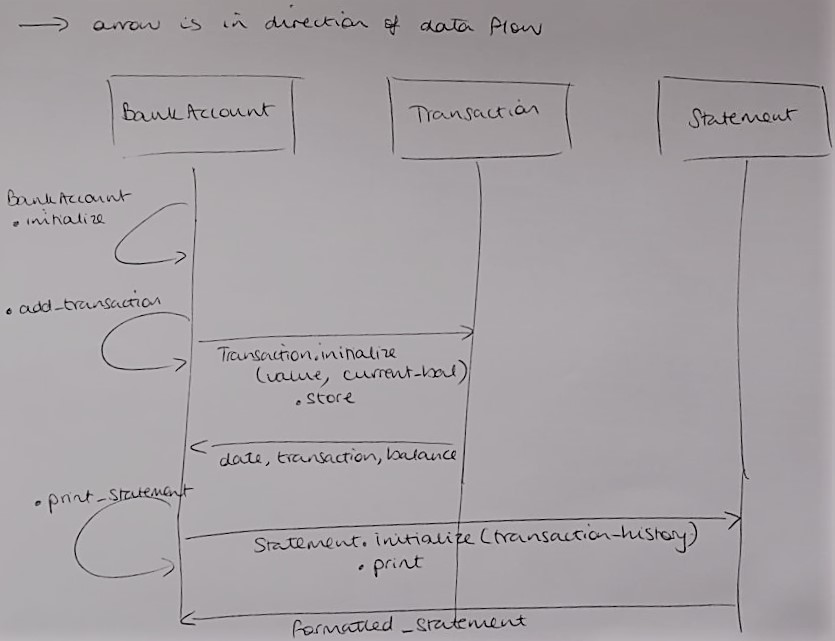 → arrow is in direction of data flow
BankAccount
Transaction
Statement
BankAccount
.initialize
.add_transaction
Transaction.initialize
(value, current-bal)
.store
date, transaction, balance
.print_statement
Statement.initialize (transaction-history)
.print
formatted_statement